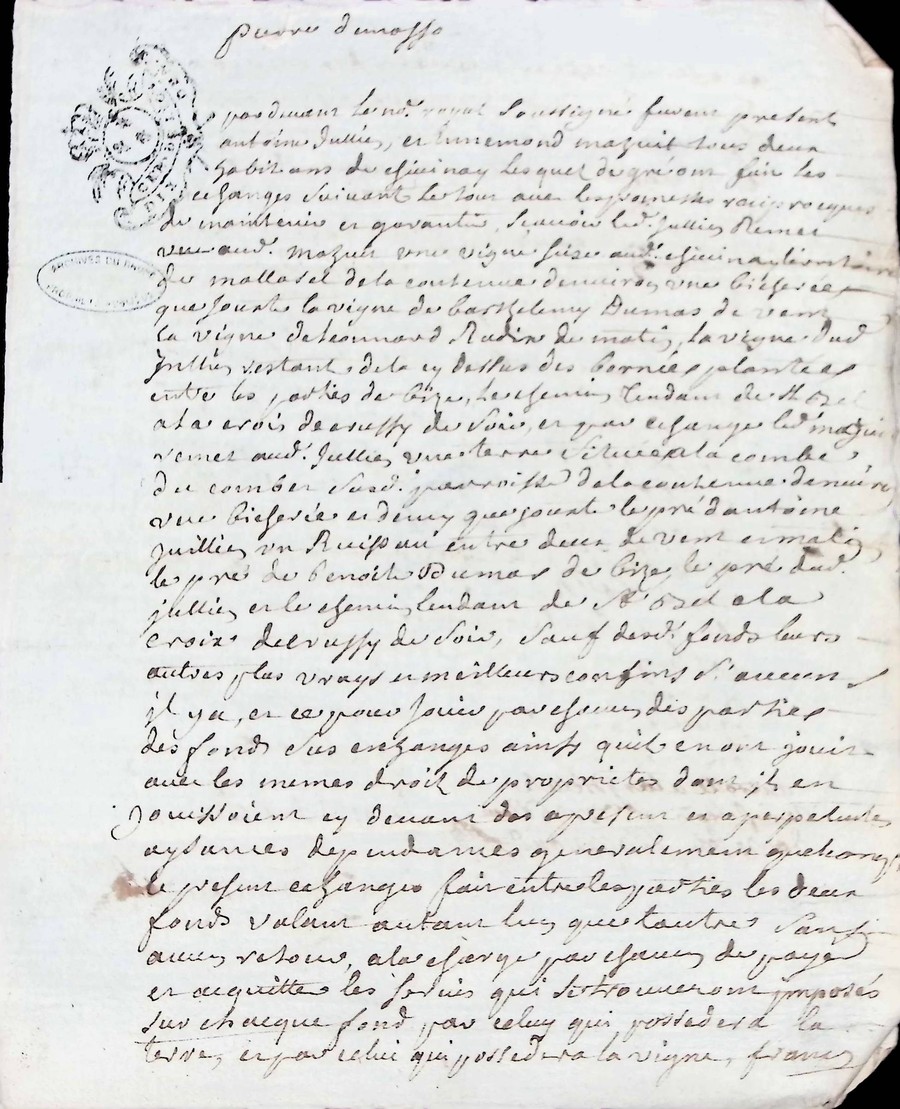 pierre dumossa
par devant le no.re royal soussigné furent present
antoine Jullien, et Ennemond mazuit tous deux
habitans de chivinay lesquel de gré ont fait les
echanges suivant le tout avec les promesses reciprocques
de maintenir et garantir, scavoir led. Jullien Remet
aud. mazuit une vigne size aud. chivinay territoire
du mallaset de la contenue denviron une bicherée
que Jouxte la vigne de barthelemy Dumas de vent
La vigne de leonnard Rudin de matin, la vigne dud.
Jullien restant de la cy dessus des bornes plantées
entre les parties de bize, le chemin tendant de St Ozel
a la crois decrussy de soir, et par echange led. mazuit
remet aud. Jullien une terre scituée a la combe
du comber susd. parroisse de la contenue denviron
une bicherée et demy que jouxte le pré dantoine
juillien un Ruissau entre deux de vent et matin,
le pré de benoit Dumas de bize, le pré dud.
jullien et le chemin tendant de St Ozel a la
croix decrussy de soir, sauf desd. fonds leurs
autres plus vrays et meilleurs confins s'aucuns
il y a, et ce pour jouir par chacun des parties
des fonds sus echanges ainsy quil en ont jouit
avec les memes droit de proprietes dont ils en
Jouissoient cy devant des a present et a perpetuité
aysances dependances generalement quelconques
le present echanges fait entre les parties les deux
fonds valant autant lun que lautre sans
aucun retour, a la charge par chacun de payer
et acquitter les servis qui se trouveront imposés
sur chacque fond par celuy qui possedera la
terre, et par celui qui possedera la vigne, francs
ARCHIVES DU RHONE